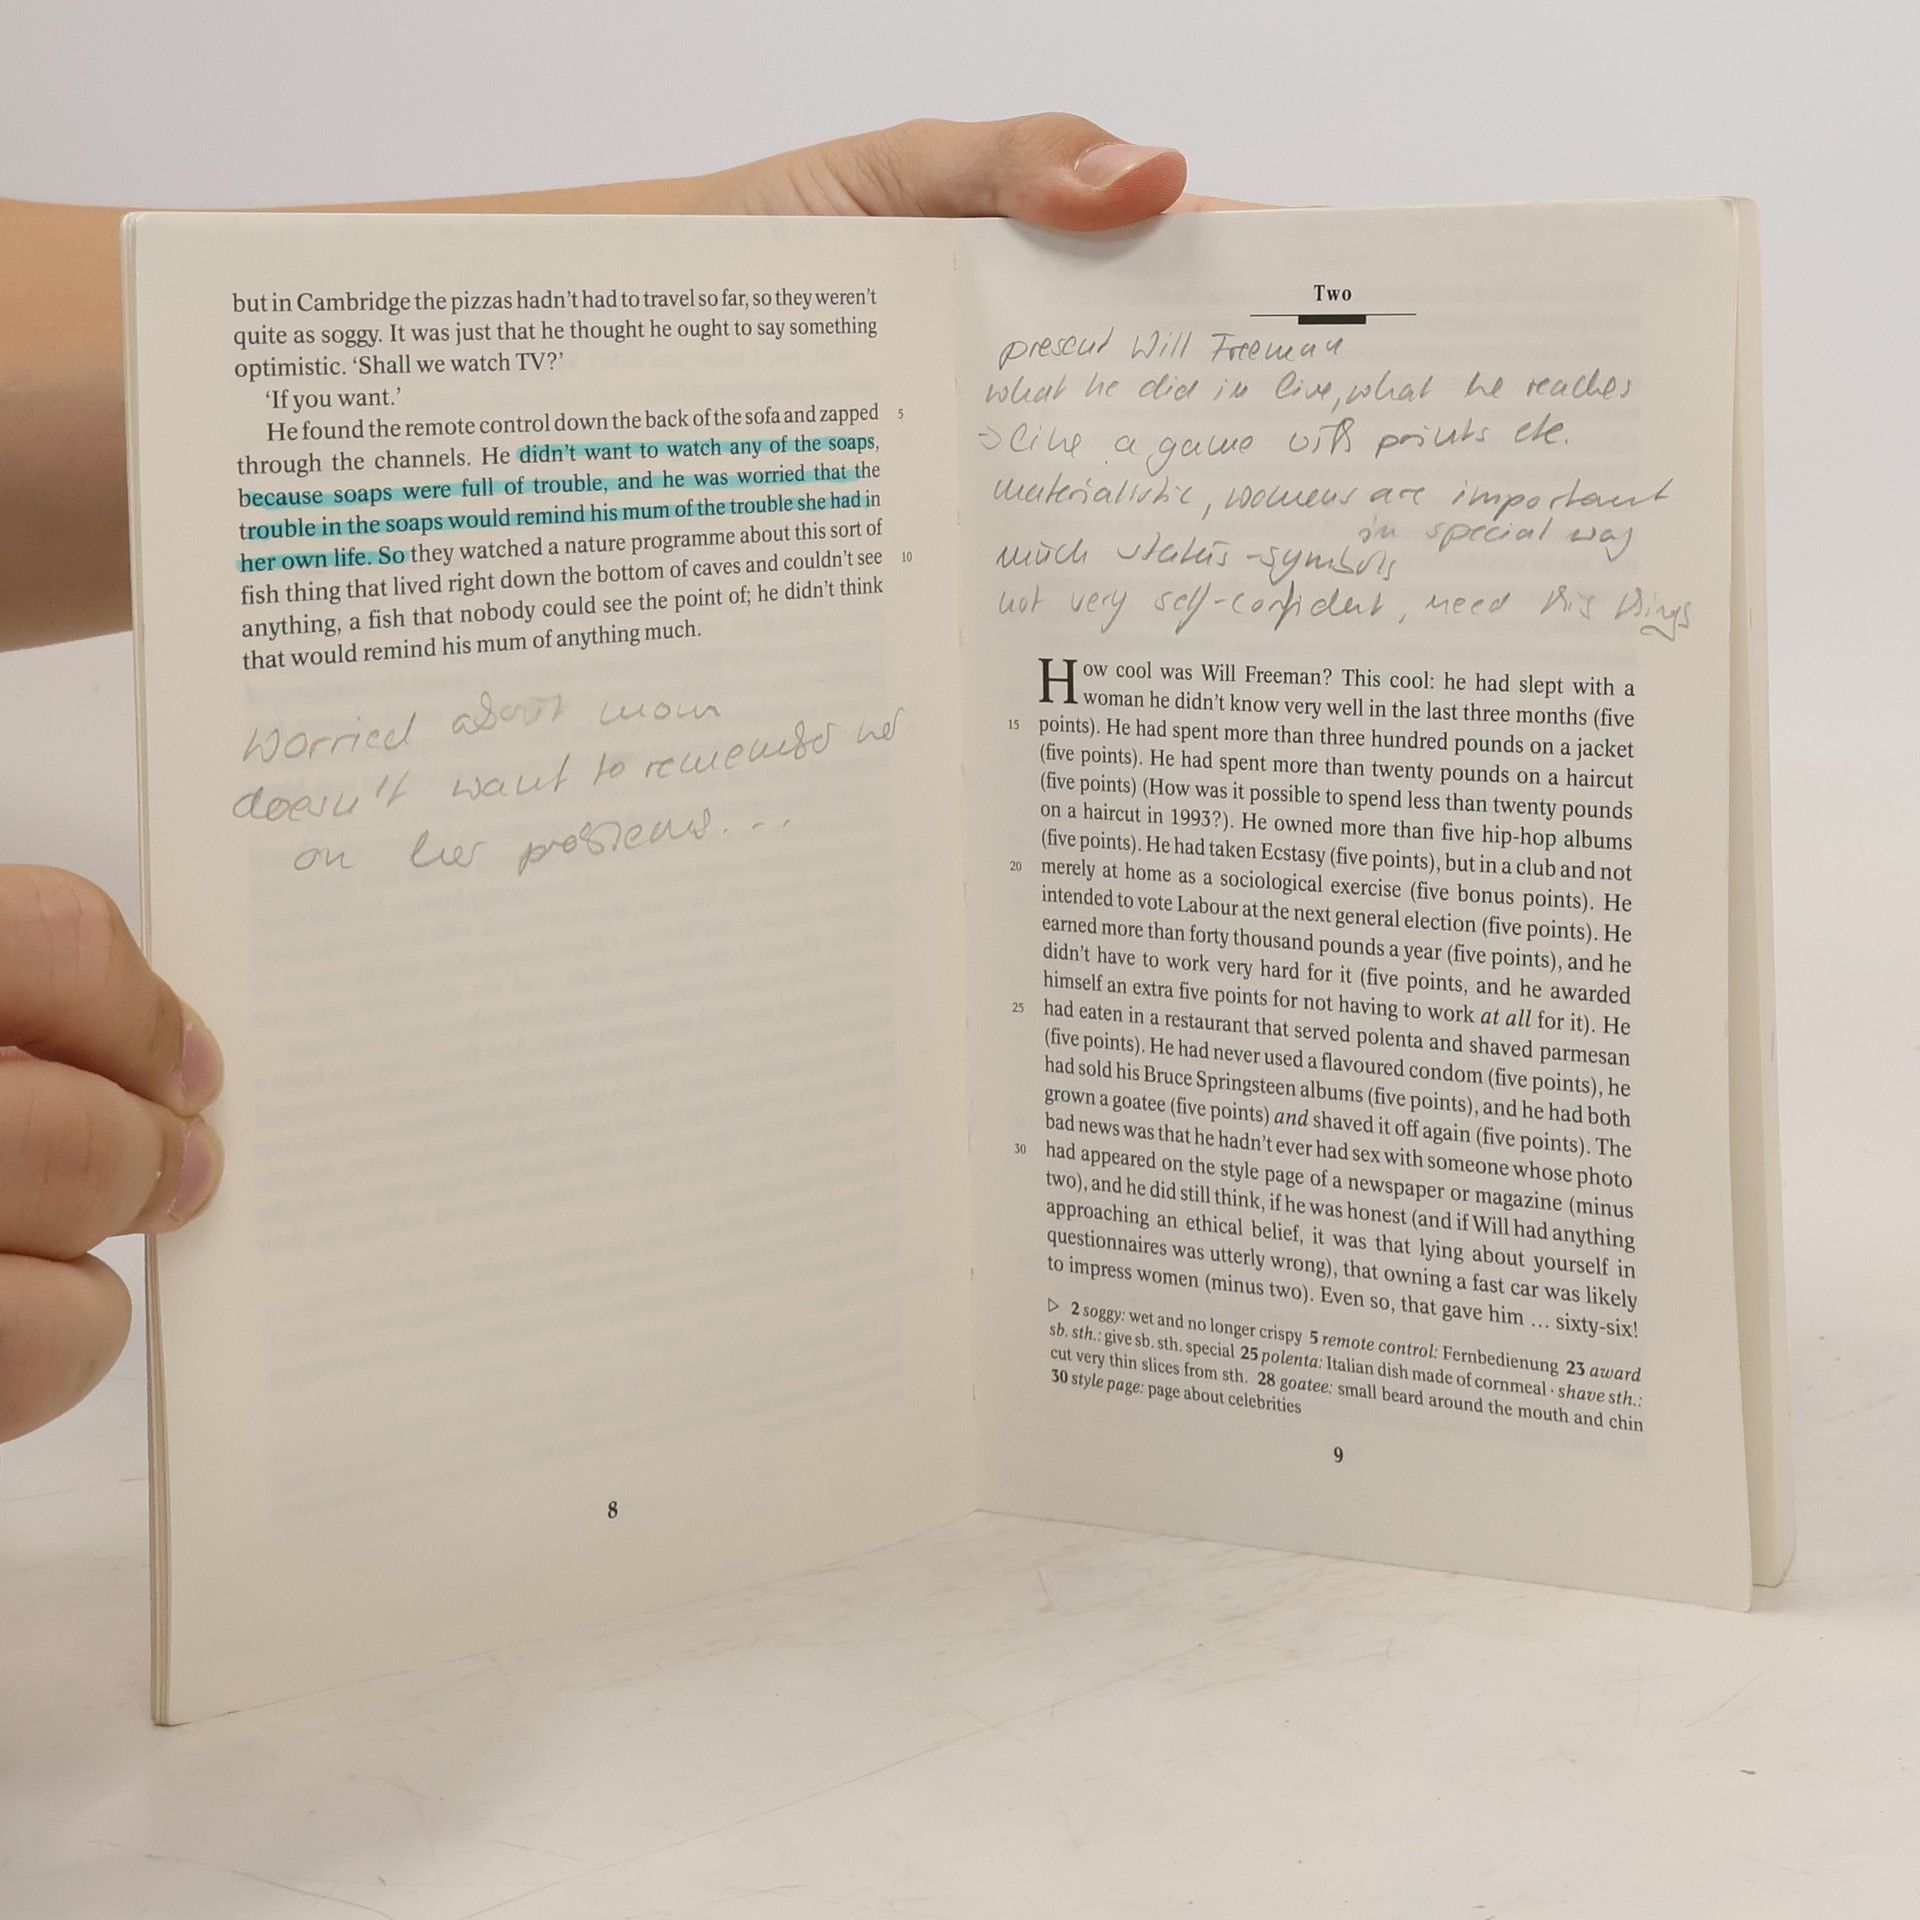 but in Cambridge the pizzas hadn't had to travel so far, so they weren't
quite as soggy. It was just that he thought he ought to say something
optimistic. ‘Shall we watch TV?’
‘If you want.’
He found the remote control down the back of the sofa and zapped 5
through the channels. He didn't want to watch any of the soaps,
because soaps were full of trouble, and he was worried that the
trouble in the soaps would remind his mum of the trouble she had in
her own life. So they watched a nature programme about this sort of
fish thing that lived right down the bottom of caves and couldn't see 10
anything, a fish that nobody could see the point of; he didn't think
that would remind his mum of anything much.
Worried about mom
doesn't want to remember her
on her problems...
8
Two
present Will Freeman
what he did in live, what he reaches
→ like a game with points etc.
materialistic, womens are important
in special way
much status-symbols
not very self-confident, need this things
How cool was Will Freeman? This cool: he had slept with a
woman he didn't know very well in the last three months (five
15 points). He had spent more than three hundred pounds on a jacket
(five points). He had spent more than twenty pounds on a haircut
(five points) (How was it possible to spend less than twenty pounds
on a haircut in 1993?). He owned more than five hip-hop albums
(five points). He had taken Ecstasy (five points), but in a club and not
20 merely at home as a sociological exercise (five bonus points). He
intended to vote Labour at the next general election (five points). He
earned more than forty thousand pounds a year (five points), and he
didn't have to work very hard for it (five points, and he awarded
himself an extra five points for not having to work at all for it). He
25 had eaten in a restaurant that served polenta and shaved parmesan
(five points). He had never used a flavoured condom (five points), he
had sold his Bruce Springsteen albums (five points), and he had both
grown a goatee (five points) and shaved it off again (five points). The
bad news was that he hadn't ever had sex with someone whose photo
30 had appeared on the style page of a newspaper or magazine (minus
two), and he did still think, if he was honest (and if Will had anything
approaching an ethical belief, it was that lying about yourself in
questionnaires was utterly wrong), that owning a fast car was likely
to impress women (minus two). Even so, that gave him ... sixty-six!
▷ 2 soggy: wet and no longer crispy 5 remote control: Fernbedienung 23 award
sb. sth.: give sb. sth. special 25 polenta: Italian dish made of cornmeal · shave sth.:
cut very thin slices from sth. 28 goatee: small beard around the mouth and chin
30 style page: page about celebrities
9